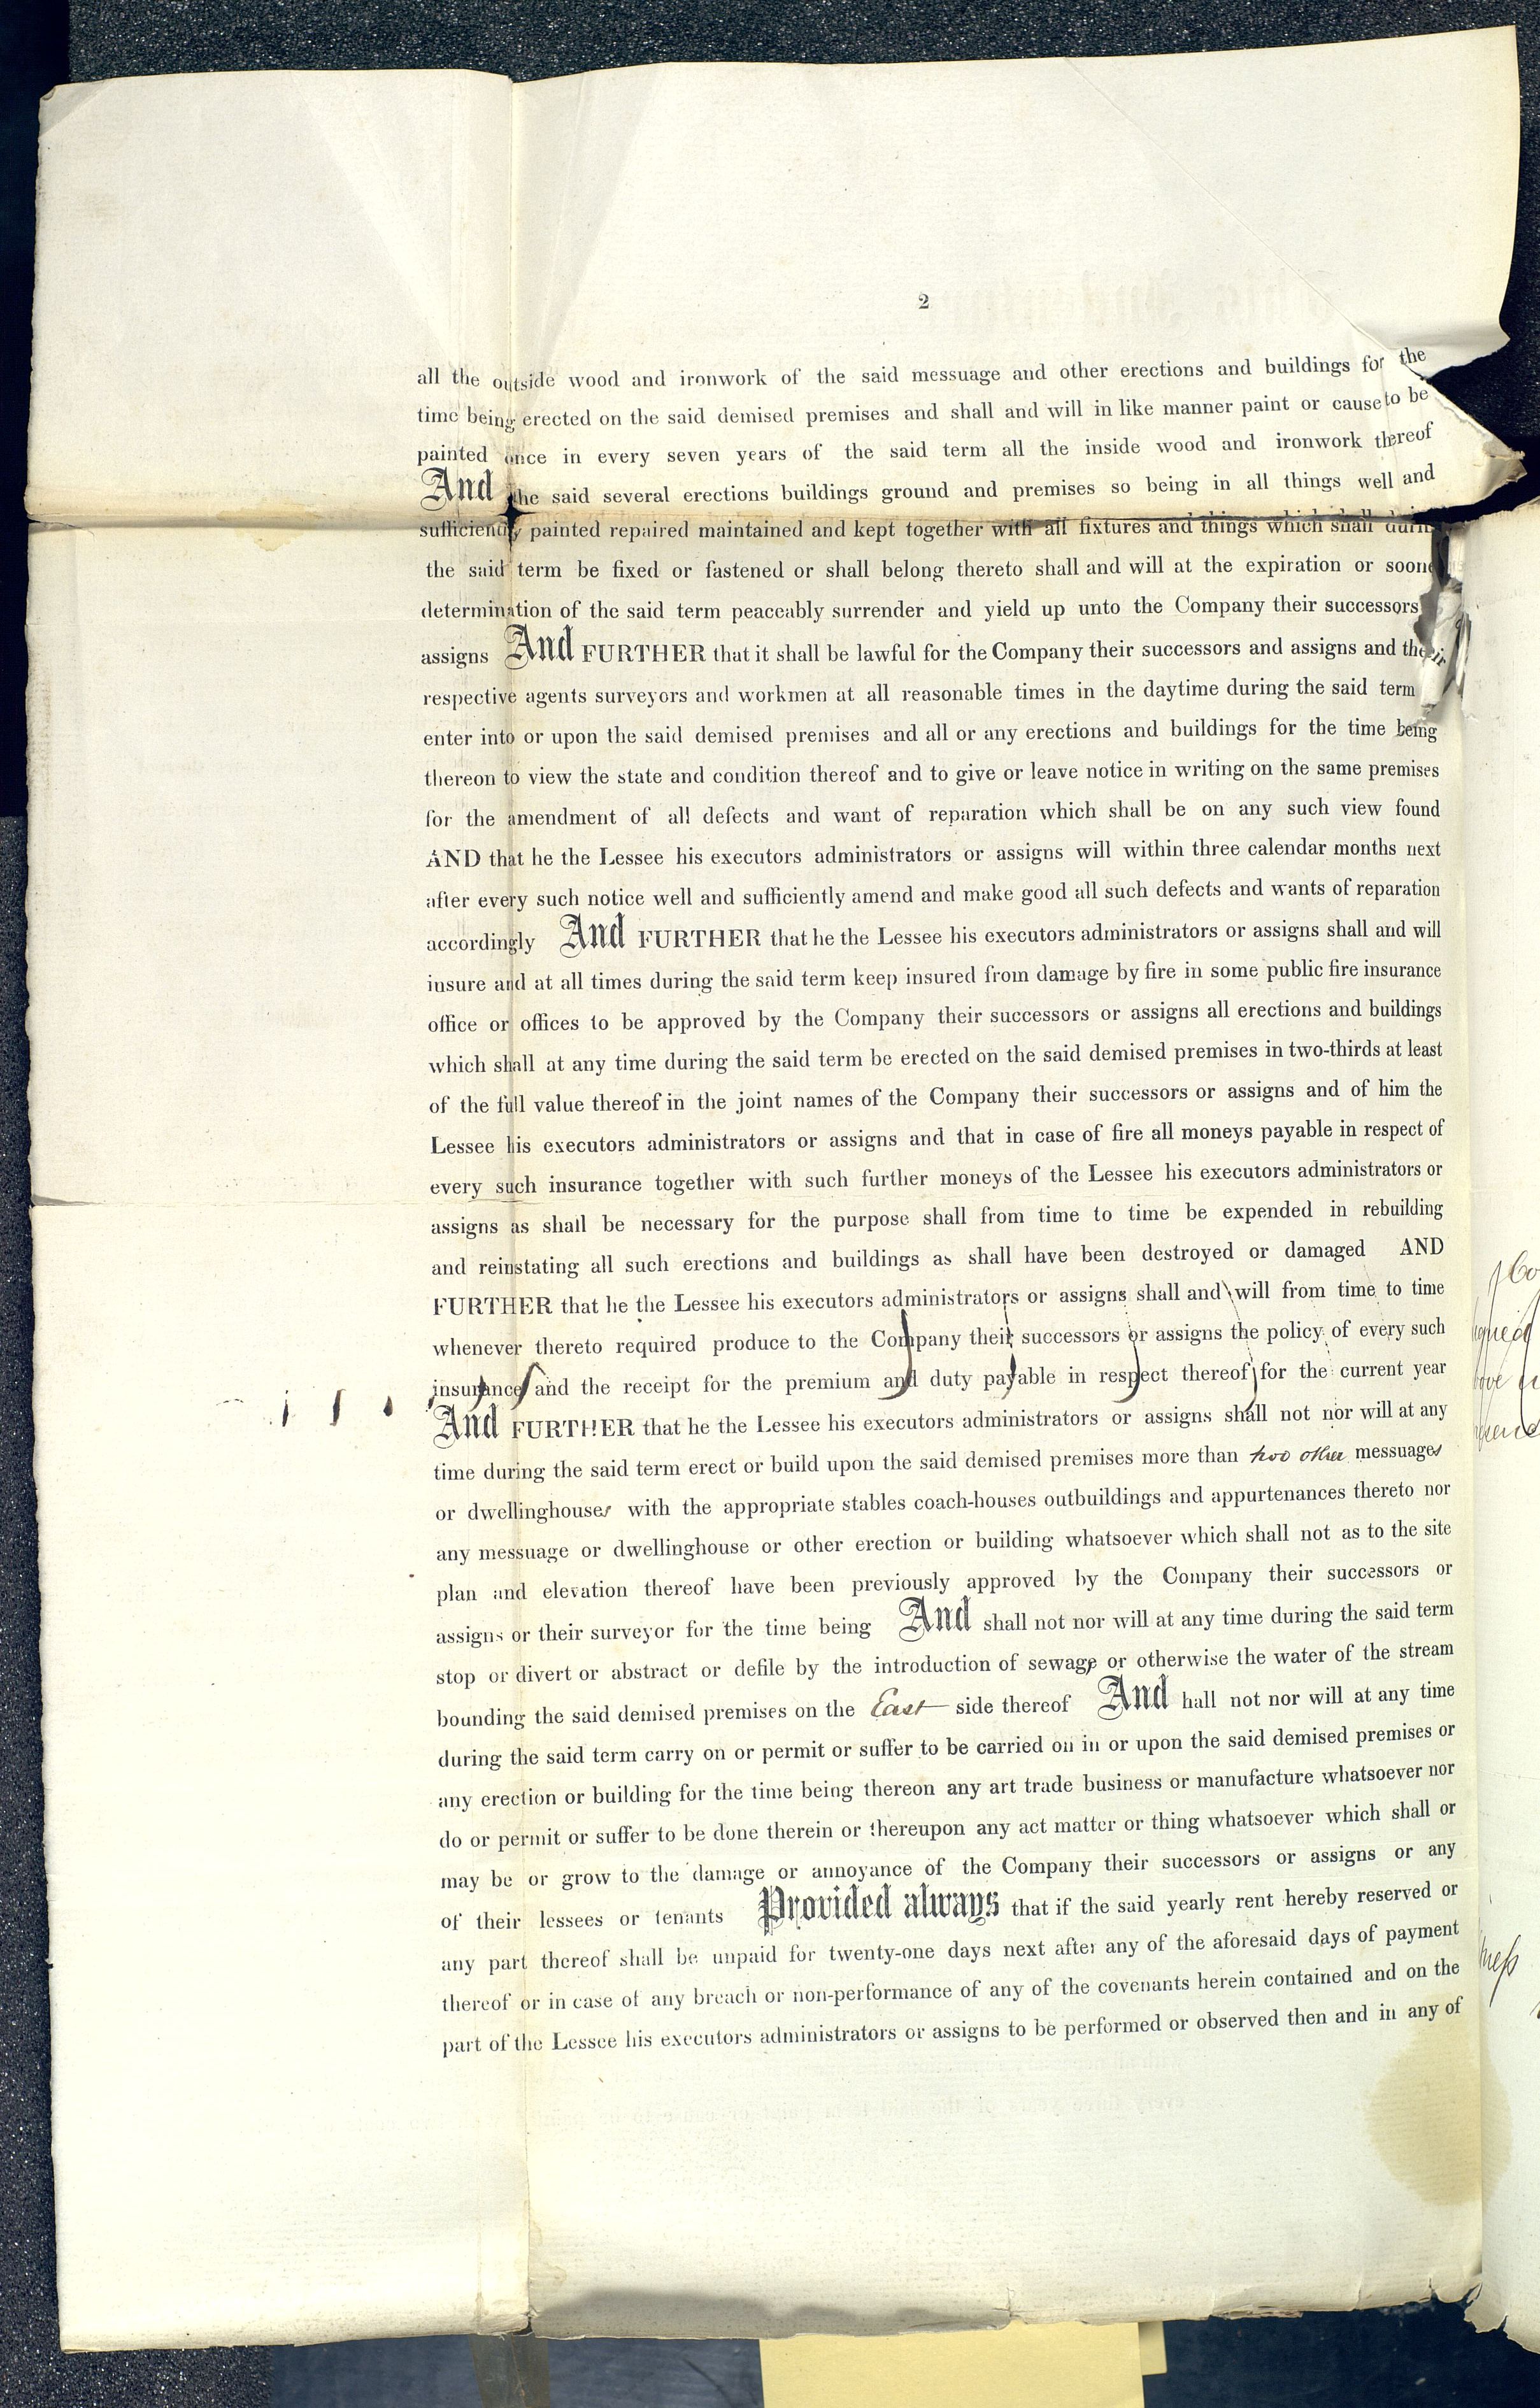 2
all the outside wood and ironwork of the said messuage and other erections and buildings for the
time being erected on the said demised premises and shall and will in like manner paint or cause to be
painted once in every seven years of the said term all the inside wood and ironwork thereof
And the said several erections buildings ground and premises so being in all things well and
sufficiently painted repaired maintained and kept together with all fixtures and things which shall durin
the said term be fixed or fastened or shall belong thereto shall and will at the expiration or soone
determination of the said term peaceably surrender and yield up unto the Company their successors
assigns And FURTHER that it shall be lawful for the Company their successors and assigns and their
respective agents surveyors and workmen at all reasonable times in the daytime during the said term
enter into or upon the said demised premises and all or any erections and buildings for the time being
thereon to view the state and condition thereof and to give or leave notice in writing on the same premises
for the amendment of all defects and want of reparation which shall be on any such view found
AND that he the Lessee his executors administrators or assigns will within three calendar months next
after every such notice well and sufficiently amend and make good all such defects and wants of reparation
accordingly And FURTHER that he the Lessee his executors administrators or assigns shall and will
insure and at all times during the said term keep insured from damage by fire in some public fire insurance
office or offices to be approved by the Company their successors or assigns all erections and buildings
which shall at any time during the said term be erected on the said demised premises in two-thirds at least
of the full value thereof in the joint names of the Company their successors or assigns and of him the
Lessee his executors administrators or assigns and that in case of fire all moneys payable in respect of
every such insurance together with such further moneys of the Lessee his executors administrators or
assigns as shall be necessary for the purpose shall from time to time be expended in rebuilding
and reinstating all such erections and buildings as shall have been destroyed or damaged AND
FURTHER that he the Lessee his executors administrators or assigns shall and will from time to time
whenever thereto required produce to the Company their successors or assigns the policy of every such
insurance and the receipt for the premium and duty payable in respect thereof for the current year
And FURTHER that he the Lessee his executors administrators or assigns shall not nor will at any
time during the said term erect or build upon the said demised premises more than two other messuages
or dwellinghouses with the appropriate stables coach-houses outbuildings and appurtenances thereto nor
any messuage or dwellinghouse or other erection or building whatsoever which shall not as to the site
plan and elevation thereof have been previously approved by the Company their successors or
assigns or their surveyor for the time being And shall not nor will at any time during the said term
stop or divert or abstract or defile by the introduction of sewage or otherwise the water of the stream
bounding the said demised premises on the East side thereof And hall not nor will at any time
during the said term carry on or permit or suffer to be carried on in or upon the said demised premises or
any erection or building for the time being thereon any art trade business or manufacture whatsoever nor
do or permit or suffer to be done therein or thereupon any act matter or thing whatsoever which shall or
may be or grow to the damage or annoyance of the Company their successors or assigns or any
of their lessees or tenants Provided always that if the said yearly rent hereby reserved or
any part thereof shall be unpaid for twenty-one days next after any of the aforesaid days of payment
thereof or in case of any breach or non-performance of any of the covenants herein contained and on the
part of the Lessee his executors administrators or assigns to be performed or observed then and in any of